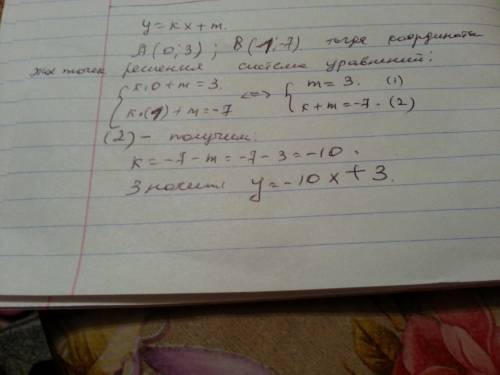 y = kx + m.
A (0; 3) ; B (1; -7) тогда координаты
этих точек решения система уравнений:
{ k·0 + m = 3. <=> { m = 3. (1)
{ k·(1) + m = -7 { k + m = -7. (2)
(2) - получим:
k = -7 - m = -7 - 3 = -10.
Значит y = -10x + 3.